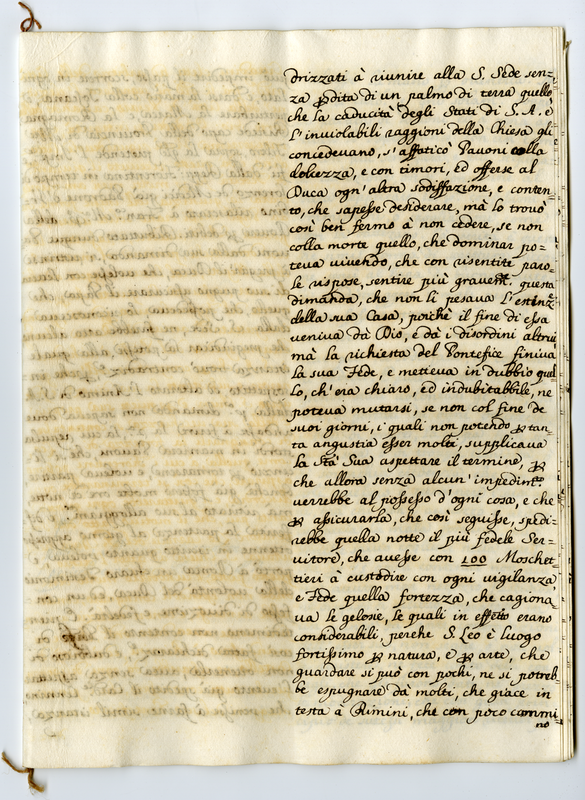 drizzati à riunire alla S. Sede sen=
za ꝑdita di un palmo di terra quello
che la caducità degli Stati di S. A. e
l'inviolabili raggioni della Chiesa gli
concedevano, s'affaticò Pavoni colla
dolcezza, e con timori, ed offerse al
Duca ogn'altra sodisfazione, e conten=
to, che sapesse desiderare, mà lo trovò
così ben fermo à non cedere, se non
colla morte quello, che dominar po=
teva vivendo, che con risentite paro=
le rispose, sentire più gravemᵗᵉ. questa
dimanda, che non li pesava l'estinzᵉ
della sua Casa, poichè il fine di essa
veniva dà Dio, e dà i disordini altrui
mà la richiesta del Pontefice finiva
la sua Fede, e metteva in dubbio quel
lo, ch'era chiaro, ed indubitabbile, ne
poteva mutarsi, se non col fine de
suoi giorni, i quali non potendo ꝑ tan=
ta angustia esser molti, supplicava
la Stà Sua aspettare il termine, ꝑ
che allora senza alcun'impedimᵗᵒ
verrebbe al possesso d'ogni cosa, e che
ꝑ assicurarla, che così seguisse, spedi=
rebbe quella notte il più fedele Ser=
vitore, che avesse con 100 Moschet=
tieri à custodire con ogni vigilanza
e Fede quella fortezza, che cagiona
va le gelosie, le quali in effetto erano
considerabili, perche S. Leo è luogo
fortissimo ꝑ natura, e ꝑ arte, che
guardare si può con pochi, ne si potreb
be espugnare dà molti, che giace in
testa à Rimini, che con poco cammi
no